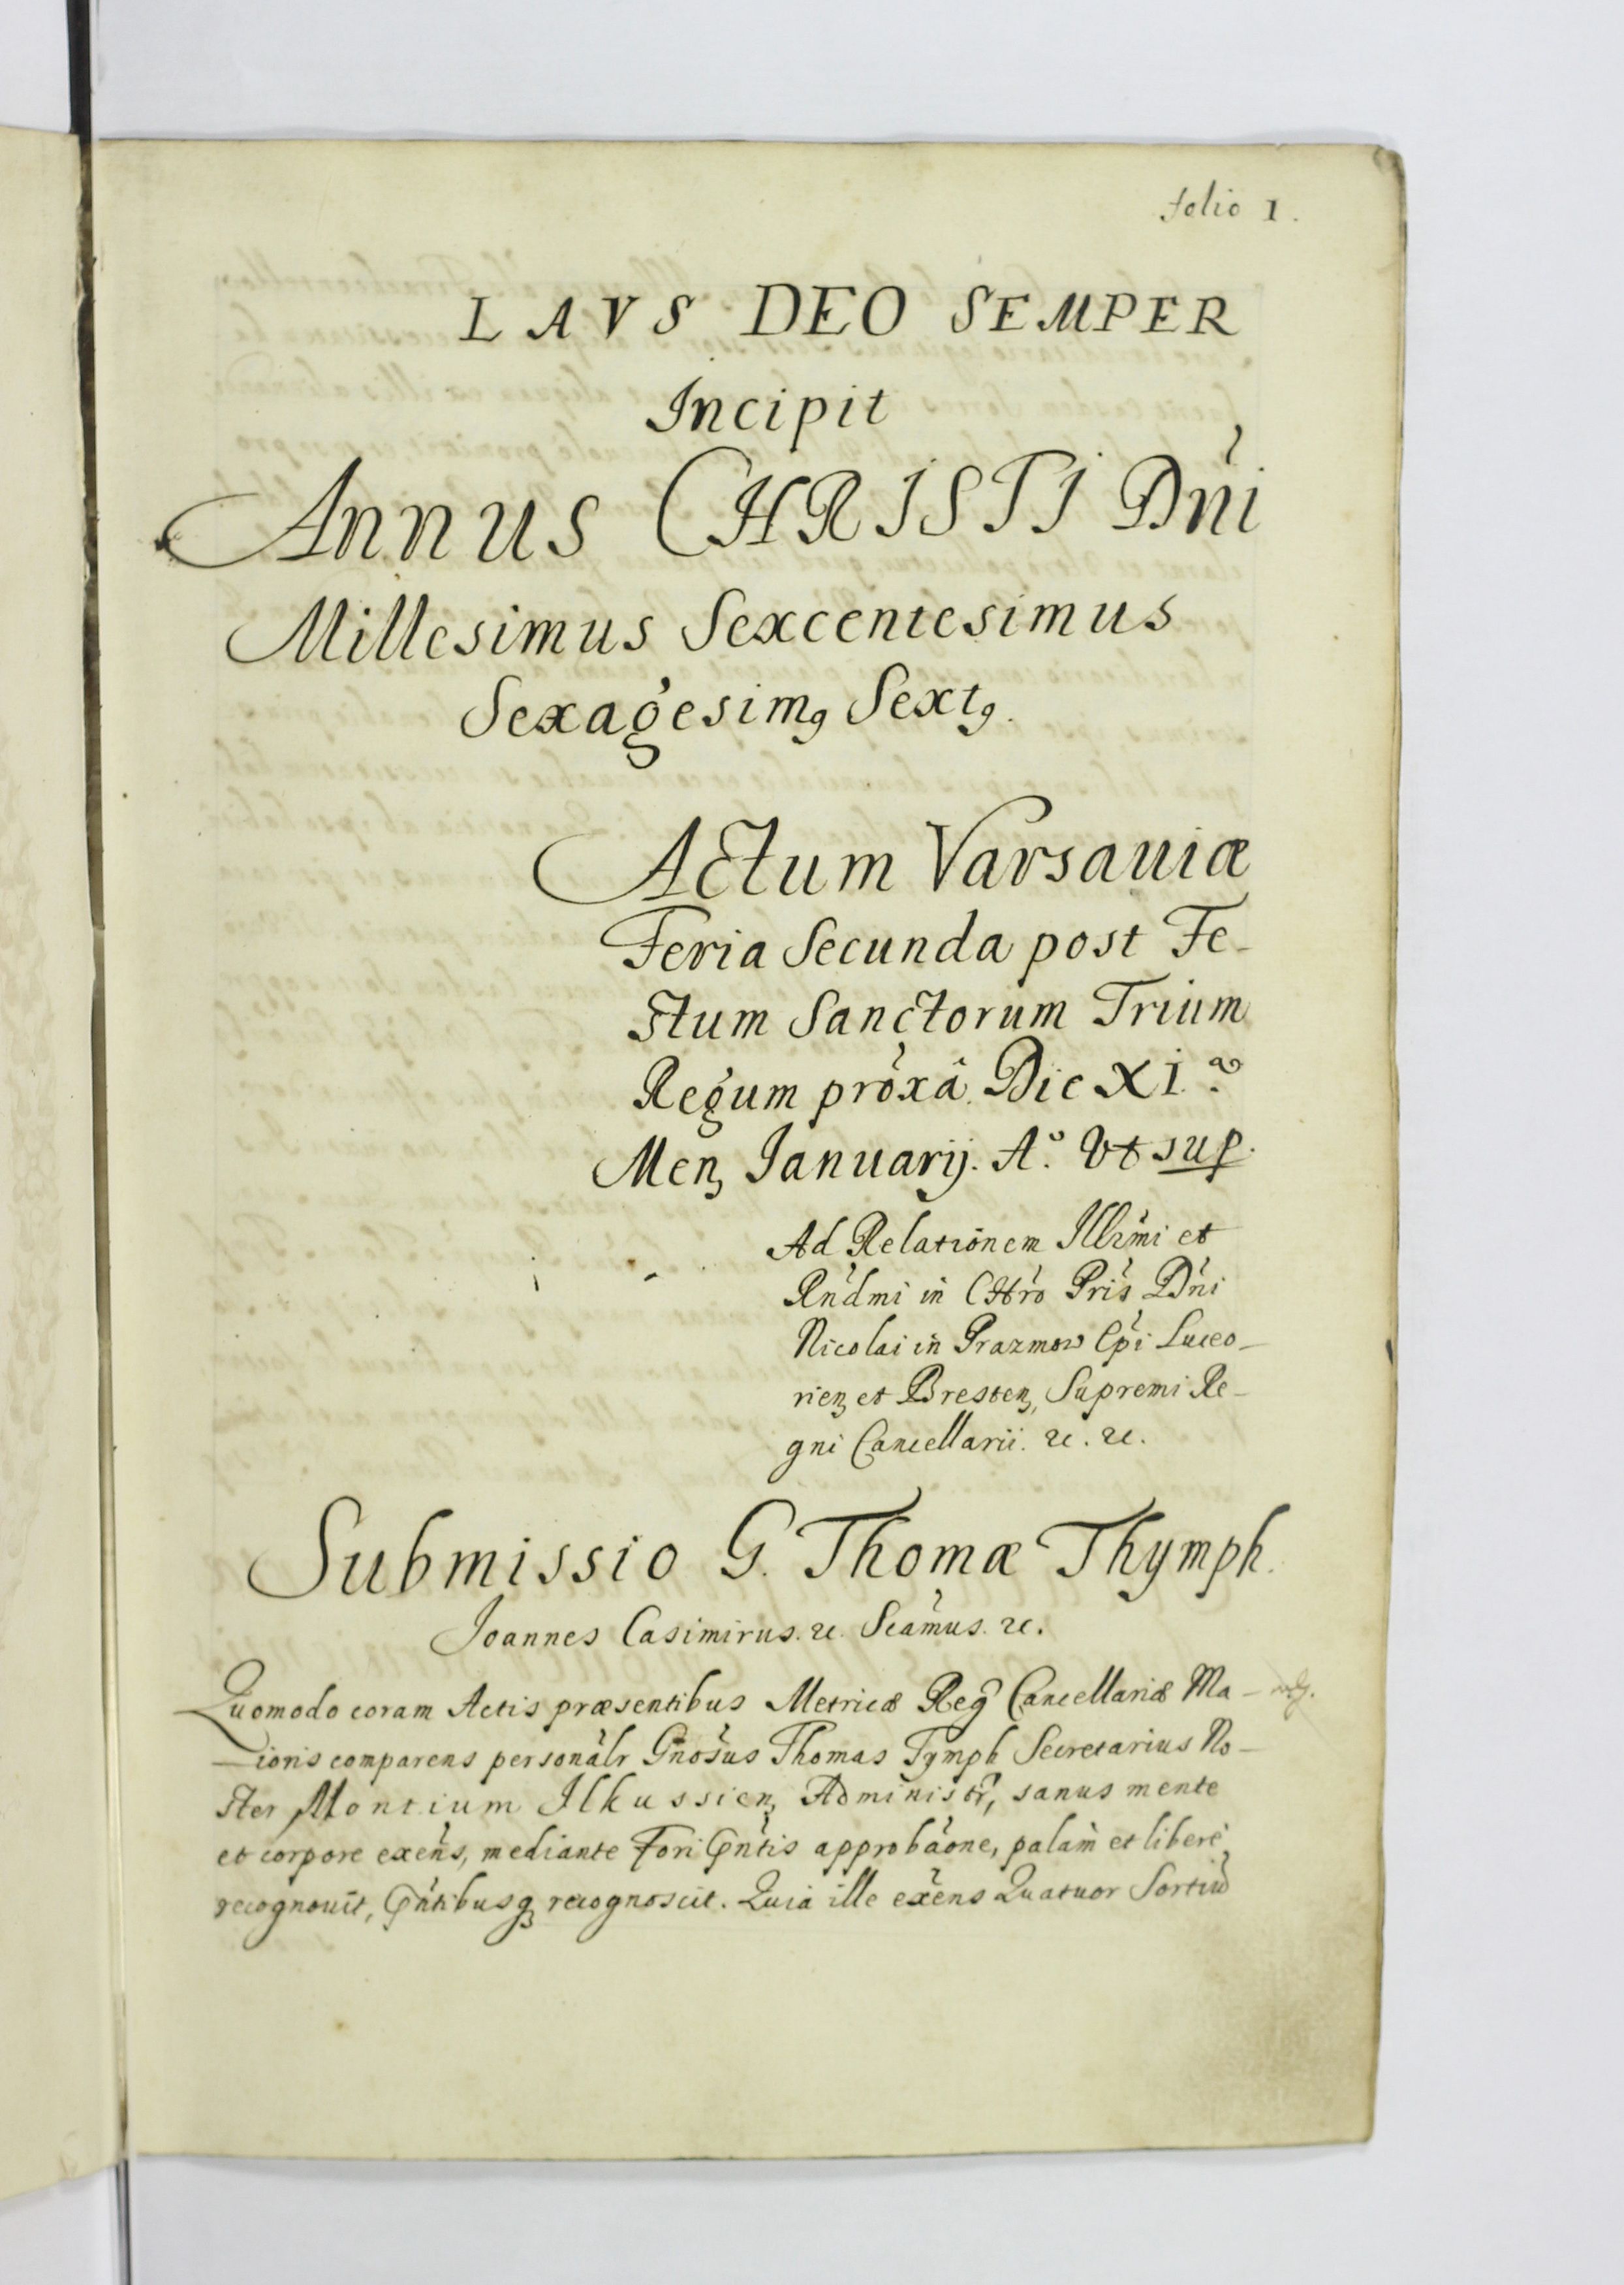 folio 1.
LAVS DEO SEMPER
Incipit
Annus CHRISTI Dñi
Millesimus Sexcentesimus
Sexagesimꝰ Sextꝰ.
Actum Varsauiæ
Feria Secunda post Fe-
stum Sanctorum Trium
Regum proxâ Die XI.ª
Menꝫ Ianuarij. A.º Vt sup.
Ad Relationem Illr̃mi et
Rñdmi in Chr̃o Pr̃is Dñi
Nicolai in Prazmow Ep̃i Luceo-
rienꝫ et Brestenꝫ, Supremi Re-
gni Cancellarii. ꝛc. ꝛc.
Submissio G. Thomæ Thymph.
Joannes Casimirus. ꝛc. Scãmus. ꝛc.
Quomodo coram Actis præsentibus Metricæ Reg̃ Cancellariæ Ma-
-ioris comparens personalr̃ Gñosus Thomas Tymph Secretarius No-
ster Montium Ilkussienꝫ Administr̃, sanus mente
et corpore exeñs, mediante Fori Pñtis approbãone, palam et libere
recognouit, Pñtibusqꝫ recognoscit. Quia ille exẽns Quatuor Sortiũ